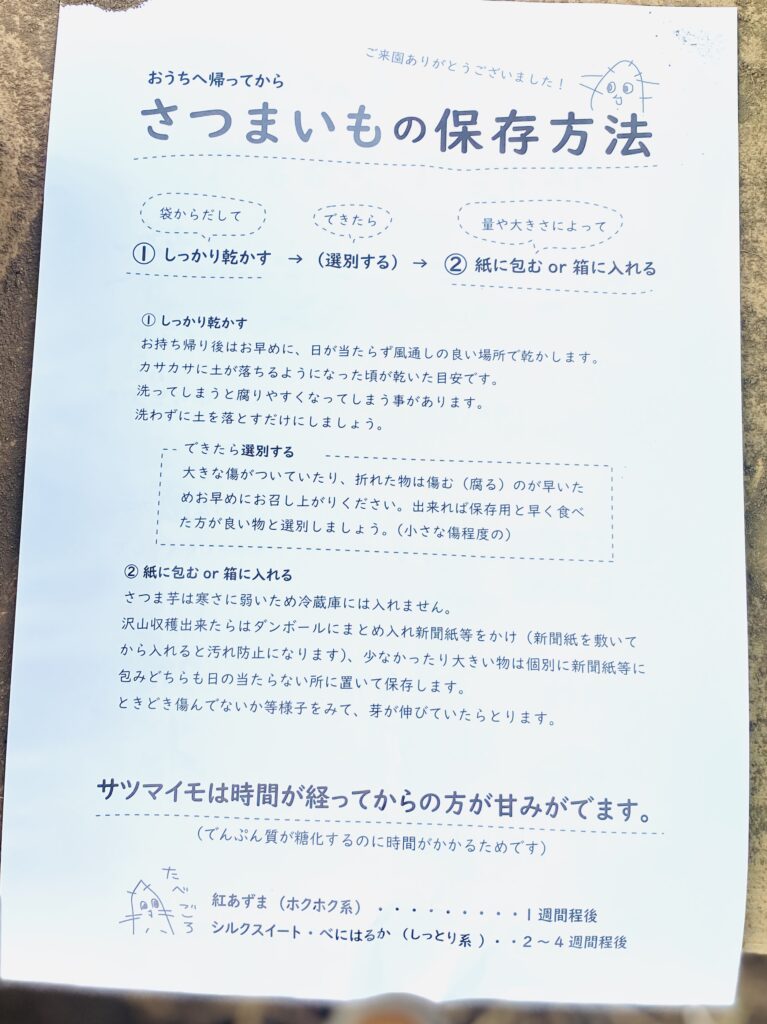 ご来園ありがとうございました！
おうちへ帰ってから
さつまいもの保存方法
袋からだして
できたら
量や大きさによって
① しっかり乾かす → （選別する） → ② 紙に包む or 箱に入れる
① しっかり乾かす
お持ち帰り後はお早めに、日が当たらず風通しの良い場所で乾かします。
カサカサに土が落ちるようになった頃が乾いた目安です。
洗ってしまうと腐りやすくなってしまう事があります。
洗わずに土を落とすだけにしましょう。
できたら選別する
大きな傷がついていたり、折れた物は傷む（腐る）のが早いた
めお早めにお召し上がりください。出来れば保存用と早く食べ
た方が良い物と選別しましょう。（小さな傷程度の）
② 紙に包む or 箱に入れる
さつま芋は寒さに弱いため冷蔵庫には入れません。
沢山収穫出来たらはダンボールにまとめ入れ新聞紙等をかけ（新聞紙を敷いて
から入れると汚れ防止になります）、少なかったり大きい物は個別に新聞紙等に
包みどちらも日の当たらない所に置いて保存します。
ときどき傷んでないか等様子をみて、芽が伸びていたらとります。
サツマイモは時間が経ってからの方が甘みがでます。
（でんぷん質が糖化するのに時間がかかるためです）
たべごろ
紅あずま（ホクホク系）・・・・・・・・・1週間程後
シルクスイート・べにはるか（しっとり系）・・2～4週間程後